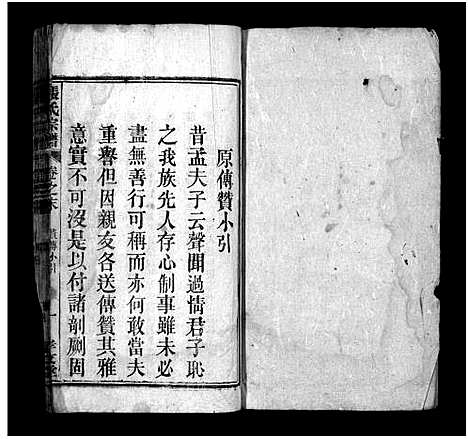 原傳贊小引
昔孟夫子云聲聞過情君子恥
之我族先人存心制事雖未必
盡無善行可稱而亦何敢當夫
重譽但因親友各送傳贊其雅
意實不可沒是以付諸剞劂固
張氏宗譜
卷之末
贊傳小引
一